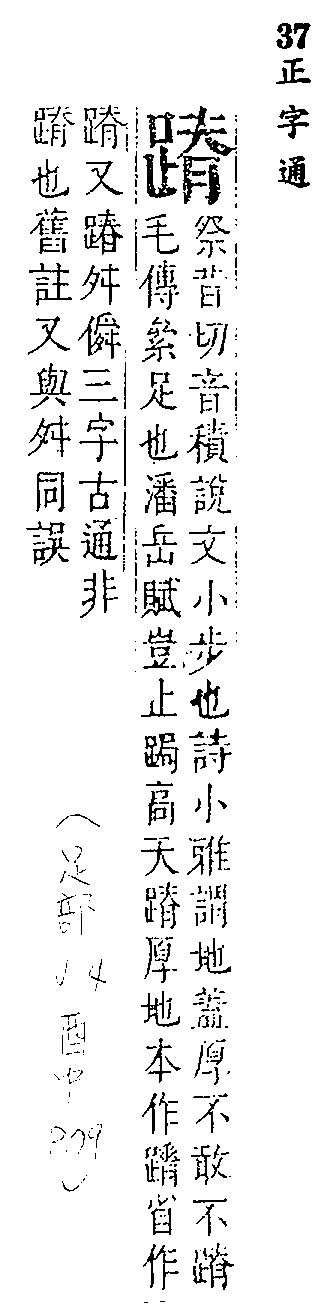 37
正字通
蹐
祭昔切音積說文小步也詩小雅謂地蓋厚不敢不蹐
毛傳絫足也潘岳賦豈止跼高天蹐厚地本作蹐省作
蹐又踳舛僢三字古通非
蹐也舊註又與舛同誤
(足部 14 酉中